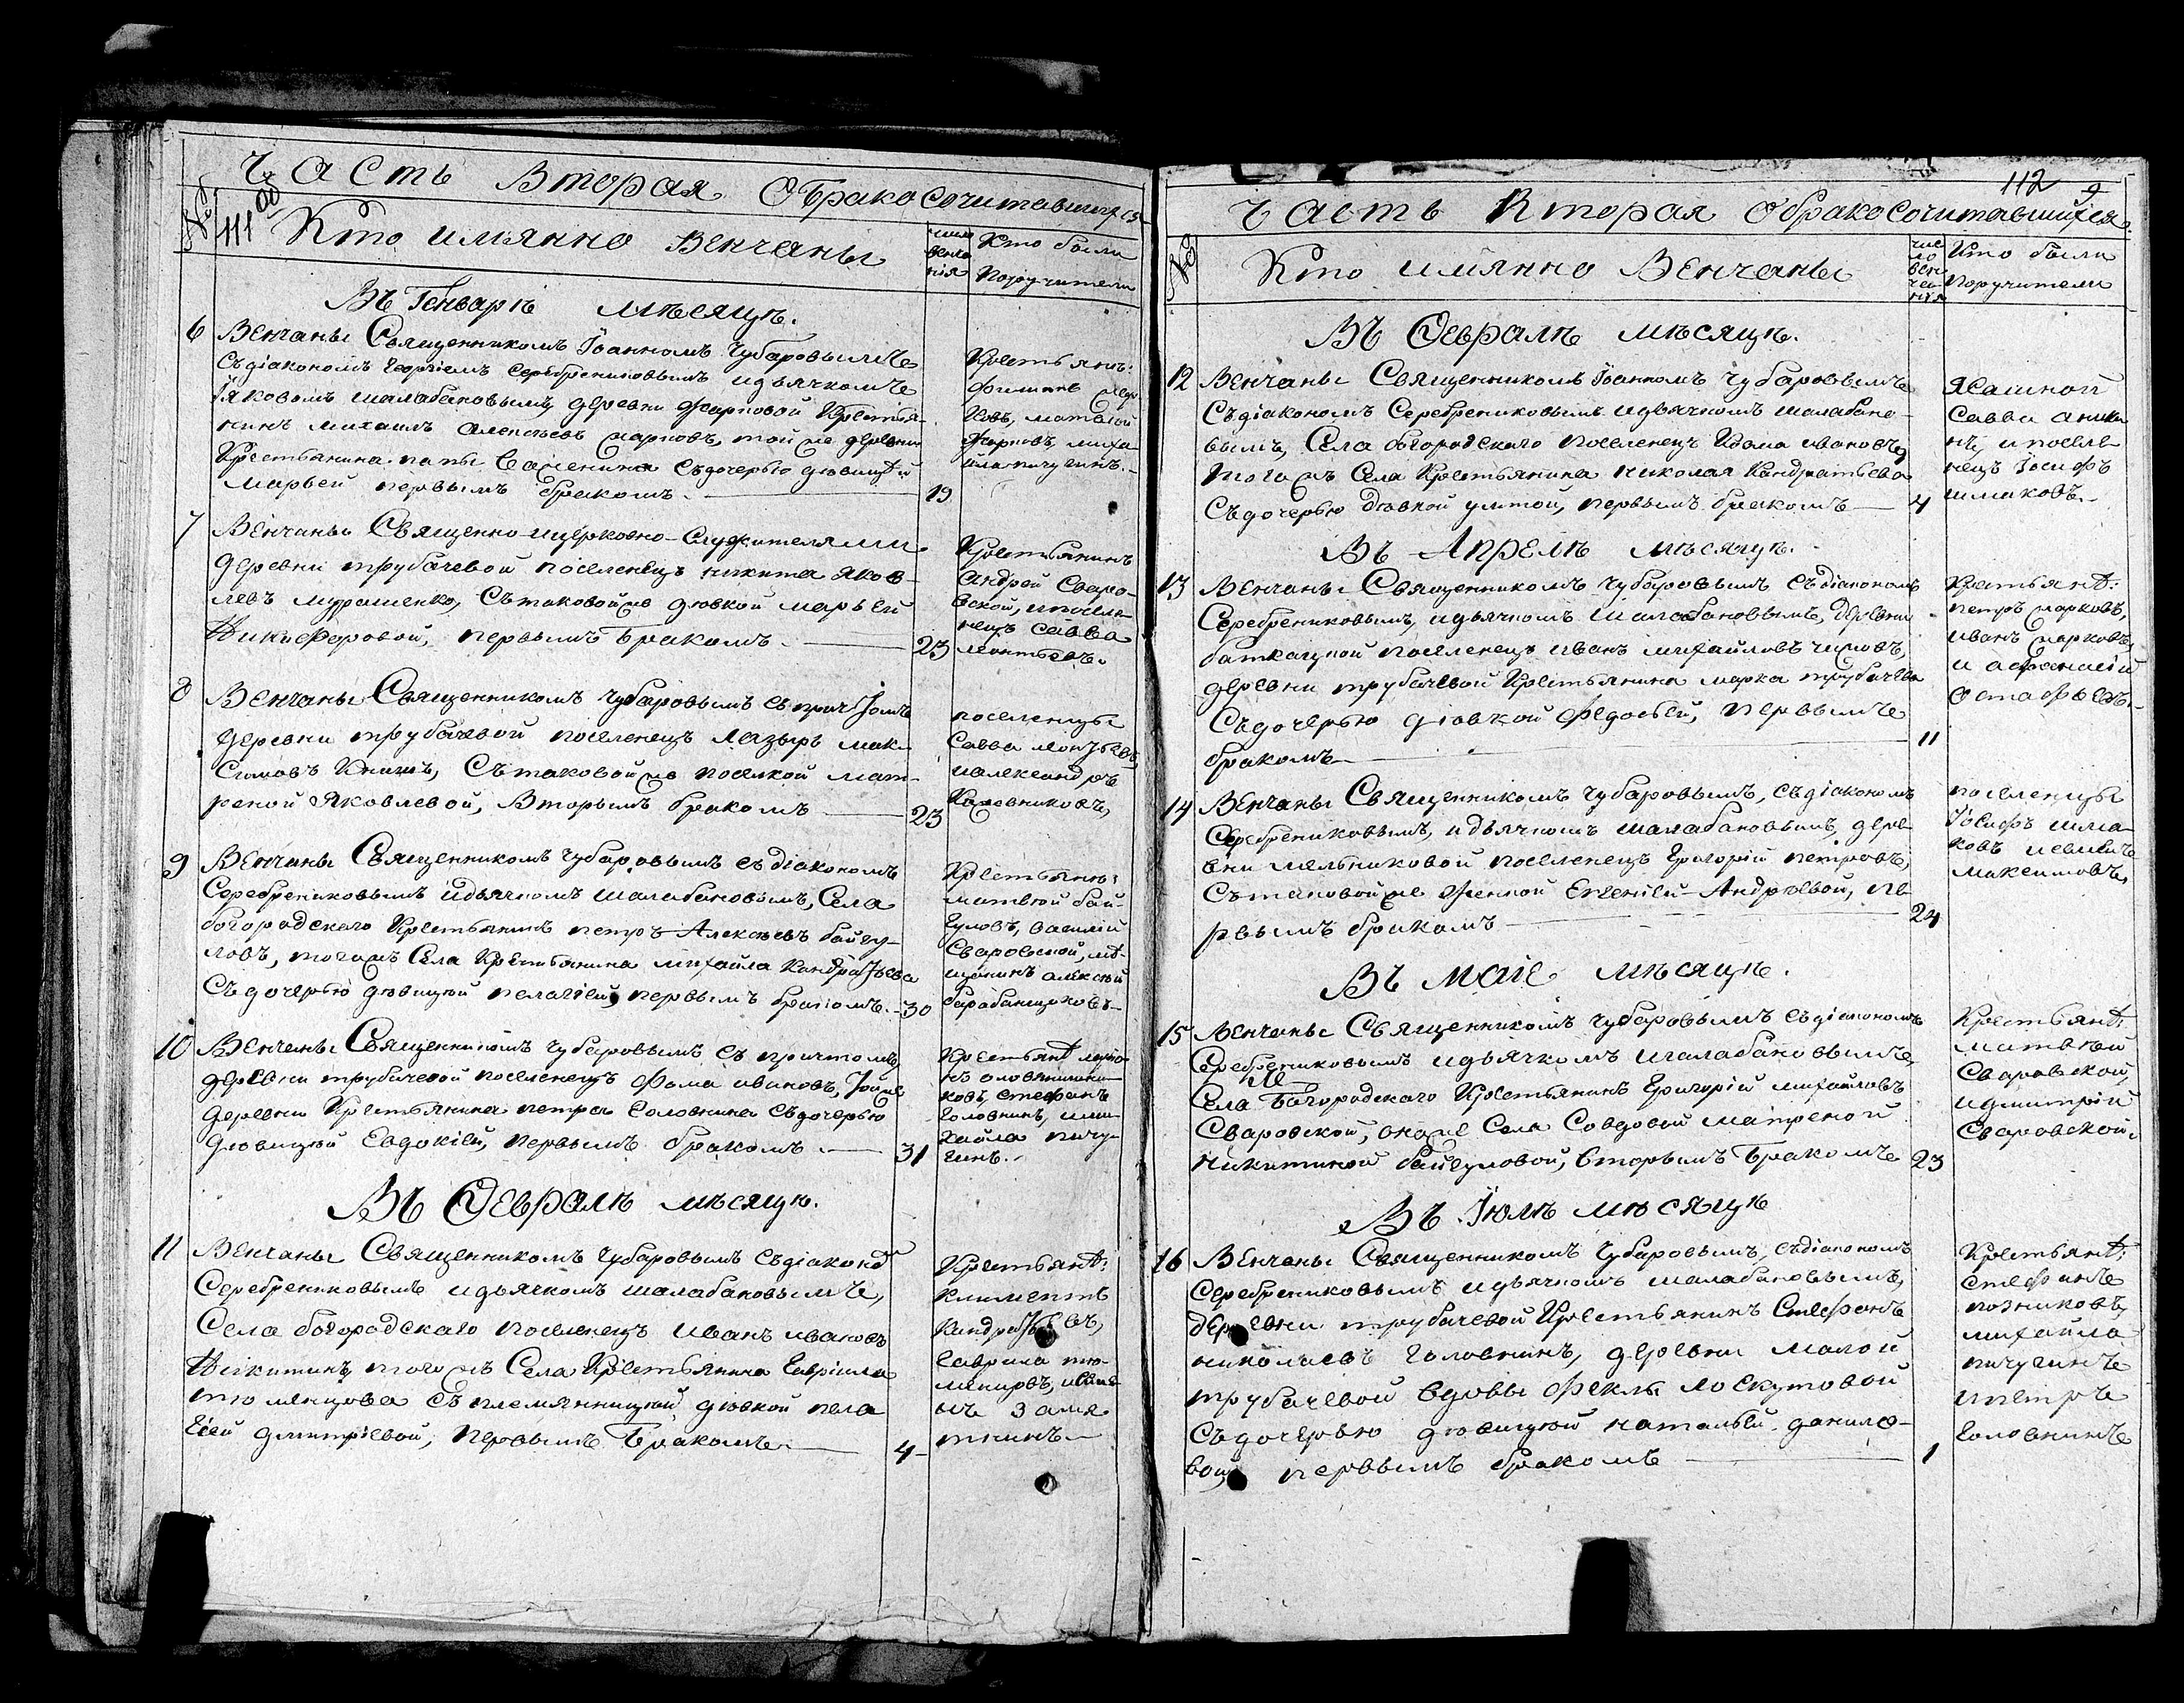 Часть Вторая О бракосочитавшихся
№ 111 об
Кто имянно Венчаны
число венча нія
Кто были Поручители
Въ Генваріѣ мѣсяцѣ.
6
Венчаны Священникомъ Іоанномъ Чубаровымъ
Съ діакономъ Георгіемъ Серебрениковымъ и дьячкомъ
Яковомъ Шалабановымъ, деревни Жарковой Крестья-
нинъ Михаилъ Алексѣевъ Жарковъ, той же деревни
Крестьянина Съ дочерью дѣвицей
Марьей первымъ бракомъ.
19
Крестьянѣ:
Матвѣй
Жарковъ, Миха-
йла Пичугинъ.
7
Венчаны Священно-церковно-служителями
деревни Трубачевой поселенецъ Никита Яков-
левъ Мурашенко, Съ таковой же дѣвкой Марьей
Никифоровой, первымъ Бракомъ.
23
Крестьянинъ
Андрей Сваро-
вской, и поселе-
нецъ Савва
Леонтьевъ.
8
Венчаны Священникомъ Чубаровымъ съ причтомъ
деревни Трубачевой поселенецъ Лазырь Мак-
симовъ Съ таковой же поселкой Мат-
реной Яковлевой, Вторымъ бракомъ
23
поселенцы
Савва Леонтьевъ,
и Александръ
9
Венчаны Священникомъ Чубаровымъ съ діакономъ
Серебрениковымъ и дьячкомъ Шалабановымъ, Села
богородскаго Крестьянинъ Петръ Алексѣевъ байгу-
ловъ, тогожъ Села Крестьянина Михайла Кандратьева
Съ дочерью дѣвицей Пелагіей, первымъ бракомъ.
30
Крестьянѣ:
Матвѣй бай-
гуловъ, Василій
Сваровской, мѣ-
щанинъ Алексѣй
барабанщиковъ
10
Венчаны Священникомъ Чубаровымъ съ причтомъ
деревни Трубачевой поселенецъ Фома Ивановъ, той же
деревни Крестьянина Петра Головнина Съ дочерью
дѣвицей Евдокіей, первымъ бракомъ.
31
Крестьянѣ
Оловянишни-
ковъ, Стефанъ
Головнинъ, и Ми-
хайла Пичу-
гинъ.
Въ Февралѣ мѣсяцѣ.
11
Венчаны Священникомъ Чубаровымъ Съ діаконо
Серебрениковымъ и дьячкомъ Шалабановымъ,
Села богородскаго поселенецъ Иванъ Ивановъ
Никитинъ, тогожъ Села Крестьянина Гавріила
Тюменцова Съ племянницей дѣвкой Пела
геей Дмитріевой, первымъ Бракомъ.
4
Крестьянѣ:
Климентъ
Кандратьевъ,
Гаврила
Замя
тнинъ
112
Часть Вторая О бракосочитавшихся
№
Кто имянно Венчаны
чис ло вен чен нія
Кто были Поручители
Въ Февралѣ мѣсяцѣ.
12
Венчаны Священникомъ Іоанномъ Чубаровымъ
Съ діакономъ Серебрениковымъ и дьячкомъ Шалабано-
вымъ, Села богородскаго Поселенецъ Ивановъ,
Тогожъ Села Крестьянина Николая Кандратьева
Съ дочерью дѣвкой Улитой, первымъ бракомъ
4
Ясашной
Савва Аники
нъ, и поселе-
нецъ Іосифъ
Шмаковъ.
Въ Апрелѣ мѣсяцѣ.
13
Венчаны Священникомъ Чубаровымъ Съ діакономъ
Серебрениковымъ, и дьячкомъ Шалабановымъ, деревни
баткацкой поселенецъ Иванъ Михайловъ
деревни Трубачевой Крестьянина Марка Трубачева
Съ дочерью дѣвкой Федосьей, Первымъ
бракомъ
11
Крестьянѣ:
Петръ Жарковъ,
Иванъ Жарковъ,
и Афанасій
Остафьевъ.
14
Венчаны Священникомъ Чубаровымъ, Съ діакономъ
Серебрениковымъ, и дьячкомъ Шалабановымъ, дере-
вни Мельниковой поселенецъ Григорій Петровъ,
Съ таковой же женкой Евгеніей Андрѣевой, пе-
рвымъ бракомъ
24
поселенцы
Іосифъ Шма-
ковъ
Максимовъ,
Въ Маіе мѣсяцѣ.
15
Венчаны Священникомъ Чубаровымъ Съ діакономъ
Серебрениковымъ и дьячкомъ Шалабановымъ,
Села Богородскаго Крестьянинъ Григорій Михайловъ
Сваровской, онаже Села Со вдовой Матреной
Никитиной байгуловой, Вторымъ Бракомъ
23
Крестьянѣ:
Матвѣй
Сваровской,
и Дмитрій
Сваровской.
Въ Іюлѣ мѣсяцѣ
16
Венчаны Священникомъ Чубаровымъ, Съ діакономъ
Серебрениковымъ и дьячкомъ Шалабановымъ,
деревни Трубачевой Крестьянинъ Стефанъ
Николаевъ Головнинъ, деревни Малой
Трубачевой вдовы Феклы Лоскутовой
Съ дочерью дѣвицей Натальей Данило-
вой, первымъ бракомъ
1
Крестьянѣ:
Стефанъ
Позниковъ,
Михайла
Пичугинъ
и Петръ
Головнинъ